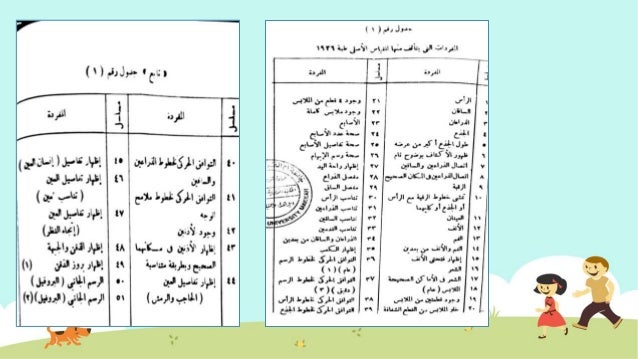 جدول رقم ( ١ )
المفردات التى يتألف منها المقياس الأصلى طبعة ١٩٢٦
المفردة
مسلسل
المفردة
١ الرأس
٢ الساقان
٣ الذراعان
٤ الجذع
٥ طول الجذع أكبر من عرضه
٦ ظهور الأكتاف بوضوح تام
٧ اتصال الذراعين والساقين
٨ اتصال الذراعين فى المكان الصحيح
٩ الرقبة
١٠ تمشى خطوط الرقبة مع الرأس
أو الجذع أو كليهما
١١ العينان
١٢ الأنف
١٣ الفم
١٤ الفم والأنف من بعدين
١٥ إظهار فتحتى الأنف
١٦ الشعر
١٧ الشعر فى الأماكن الصحيحة
١٨ الملابس ( عام )
١٩ وجود قطعتين من الملابس
٢٠ خلو الملابس من القطع الشفافة
٢١ وجود ٤ قطع من الملابس
٢٢ وجود ملابس كاملة
٢٣ الأصابع
٢٤ صحة عدد الأصابع
٢٥ صحة تفاصيل الأصابع
٢٦ صحة رسم الإبهام
٢٧ إظهار راحة اليد
٢٨ مفصل الذراع
٢٩ مفصل الساق
٣٠ تناسب الرأس
٣١ تناسب الذراعين
٣٢ تناسب الساقين
٣٣ تناسب القدمين
٣٤ الذراعان والساقان من بعدين
٣٥ إظهار الكعب
٣٦ التوافق الحركى لخطوط الرسم
( عام ) ( ١ )
٣٧ التوافق الحركى لخطوط الرسم
( دقيق ) ( ٢ )
٣٨ التوافق الحركى لخطوط الرأس
٣٩ التوافق الحركى لخطوط الجذع
« تابع » جدول رقم ( ١ )
مسلسل
المفردة
مسلسل
المفردة
٤٠ التوافق الحركى لخطوط الذراعين
والساقين
٤١ التوافق الحركى لخطوط ملامح
الوجه
٤٢ وجود الأذنين
٤٣ إظهار الأذنين فى مكانهما
الصحيح وبطريقة متناسبة
٤٤ إظهار تفاصيل العين
( الحاجب والرمش )
٤٥ إظهار تفاصيل ( إنسان العين )
٤٦ إظهار تفاصيل العين
( تناسب العين )
٤٧ إظهار تفاصيل العين
( إتجاه النظر )
٤٨ إظهار الذقن والجبهة
٤٩ إظهار بروز الذقن (١)
٥٠ الرسم الجانبى ( البروفيل )
٥١ الرسم الجانبى ( البروفيل )(٢)